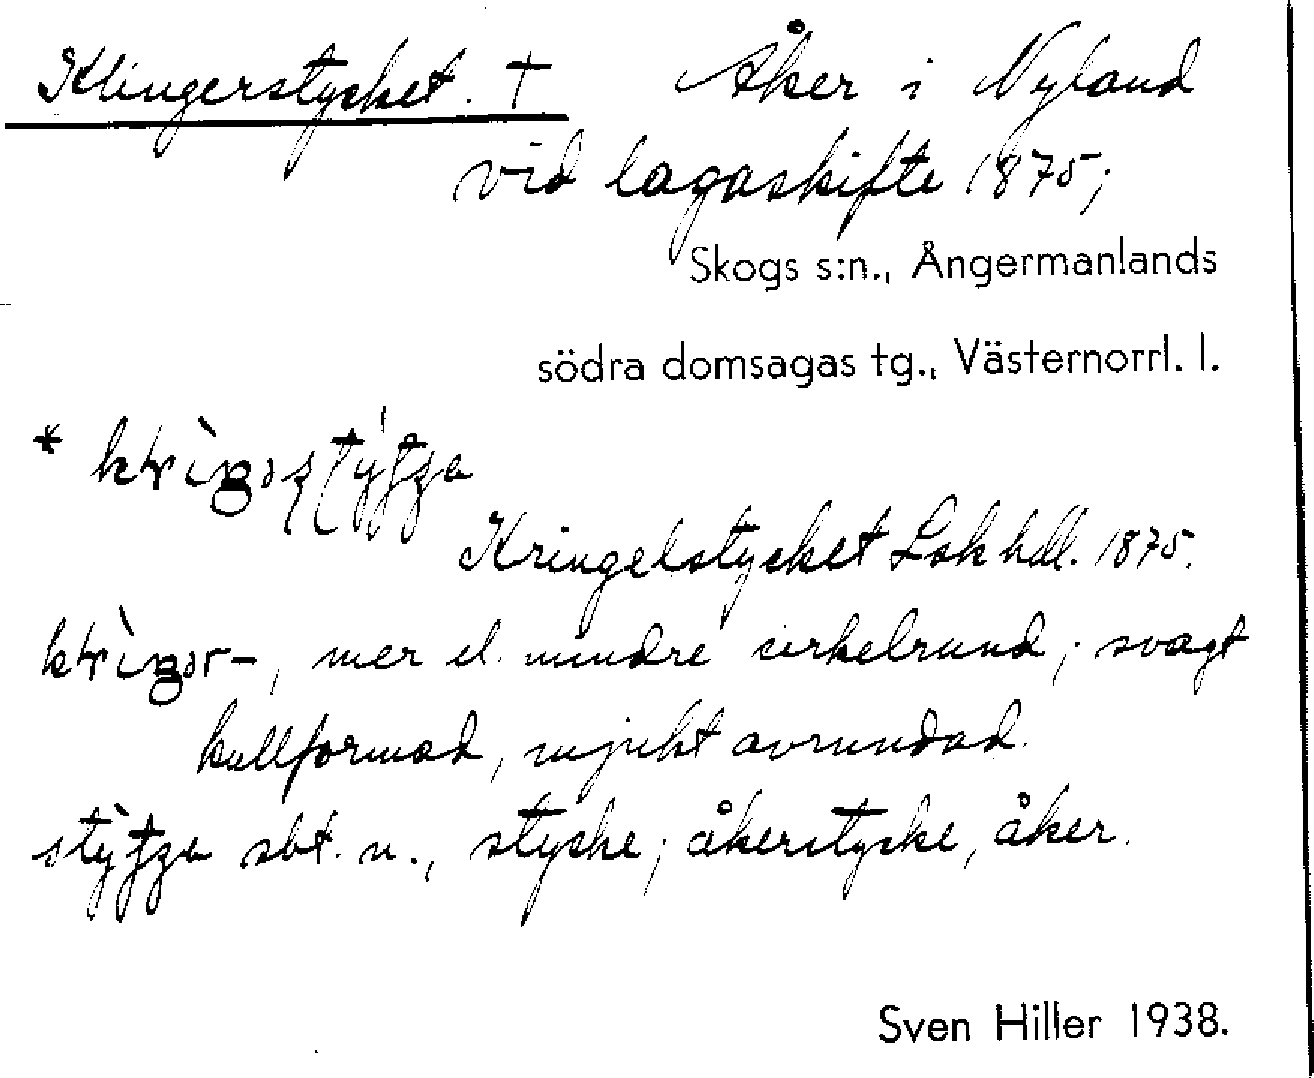 Klingerstycket. † Åker i Nyland
vid lagaskifte 1875;
Skogs s:n., Ångermanlands
södra domsagas tg., Västernorrl. l.
*
Kringelstycket Lsk hdl. 1875.
mer el. mindre cirkelrund; svagt
kullformad, mjukt avrundad.
sbt. n., stycke; åkerstycke, åker.
Sven Hiller 1938.